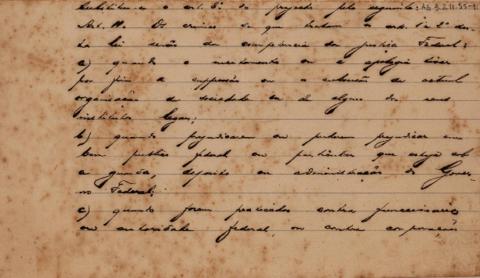 Substitua-se o art. 5º do projecto pelo seguinte:
Art. 11. Os crimes de que tratam o arts. 1 e 2 des-
ta lei serão da competencia da justiça Federal:
a) quando o incitamento ou a apologia tiver
por fim a suppressão ou a subversão da actual
organisação da sociedade ou de algum dos seus
institutos legaes;
b) quando prejudicarem ou puderem prejudicar um
bem publico federal ou particular que esteja sob
a guarda, deposito ou administração do Gover-
no Federal;
c) quando forem praticados contra funccionario
ou autoridade federal, ou contra corporação